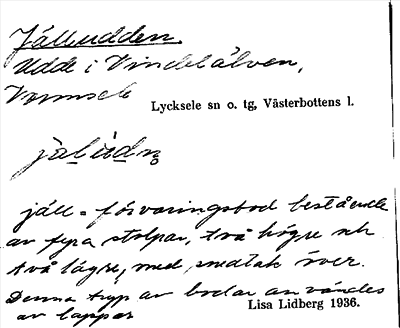 Jälludden.
Udde i Vindelälven,
Vormsele
Lycksele sn o. tg, Västerbottens l.
jäll = förvaringsbod bestående
av fyra stolpar, två högre och
två lägre, med snedtak över.
Denna typ av bodar användes
av lappar
Lisa Lidberg 1936.